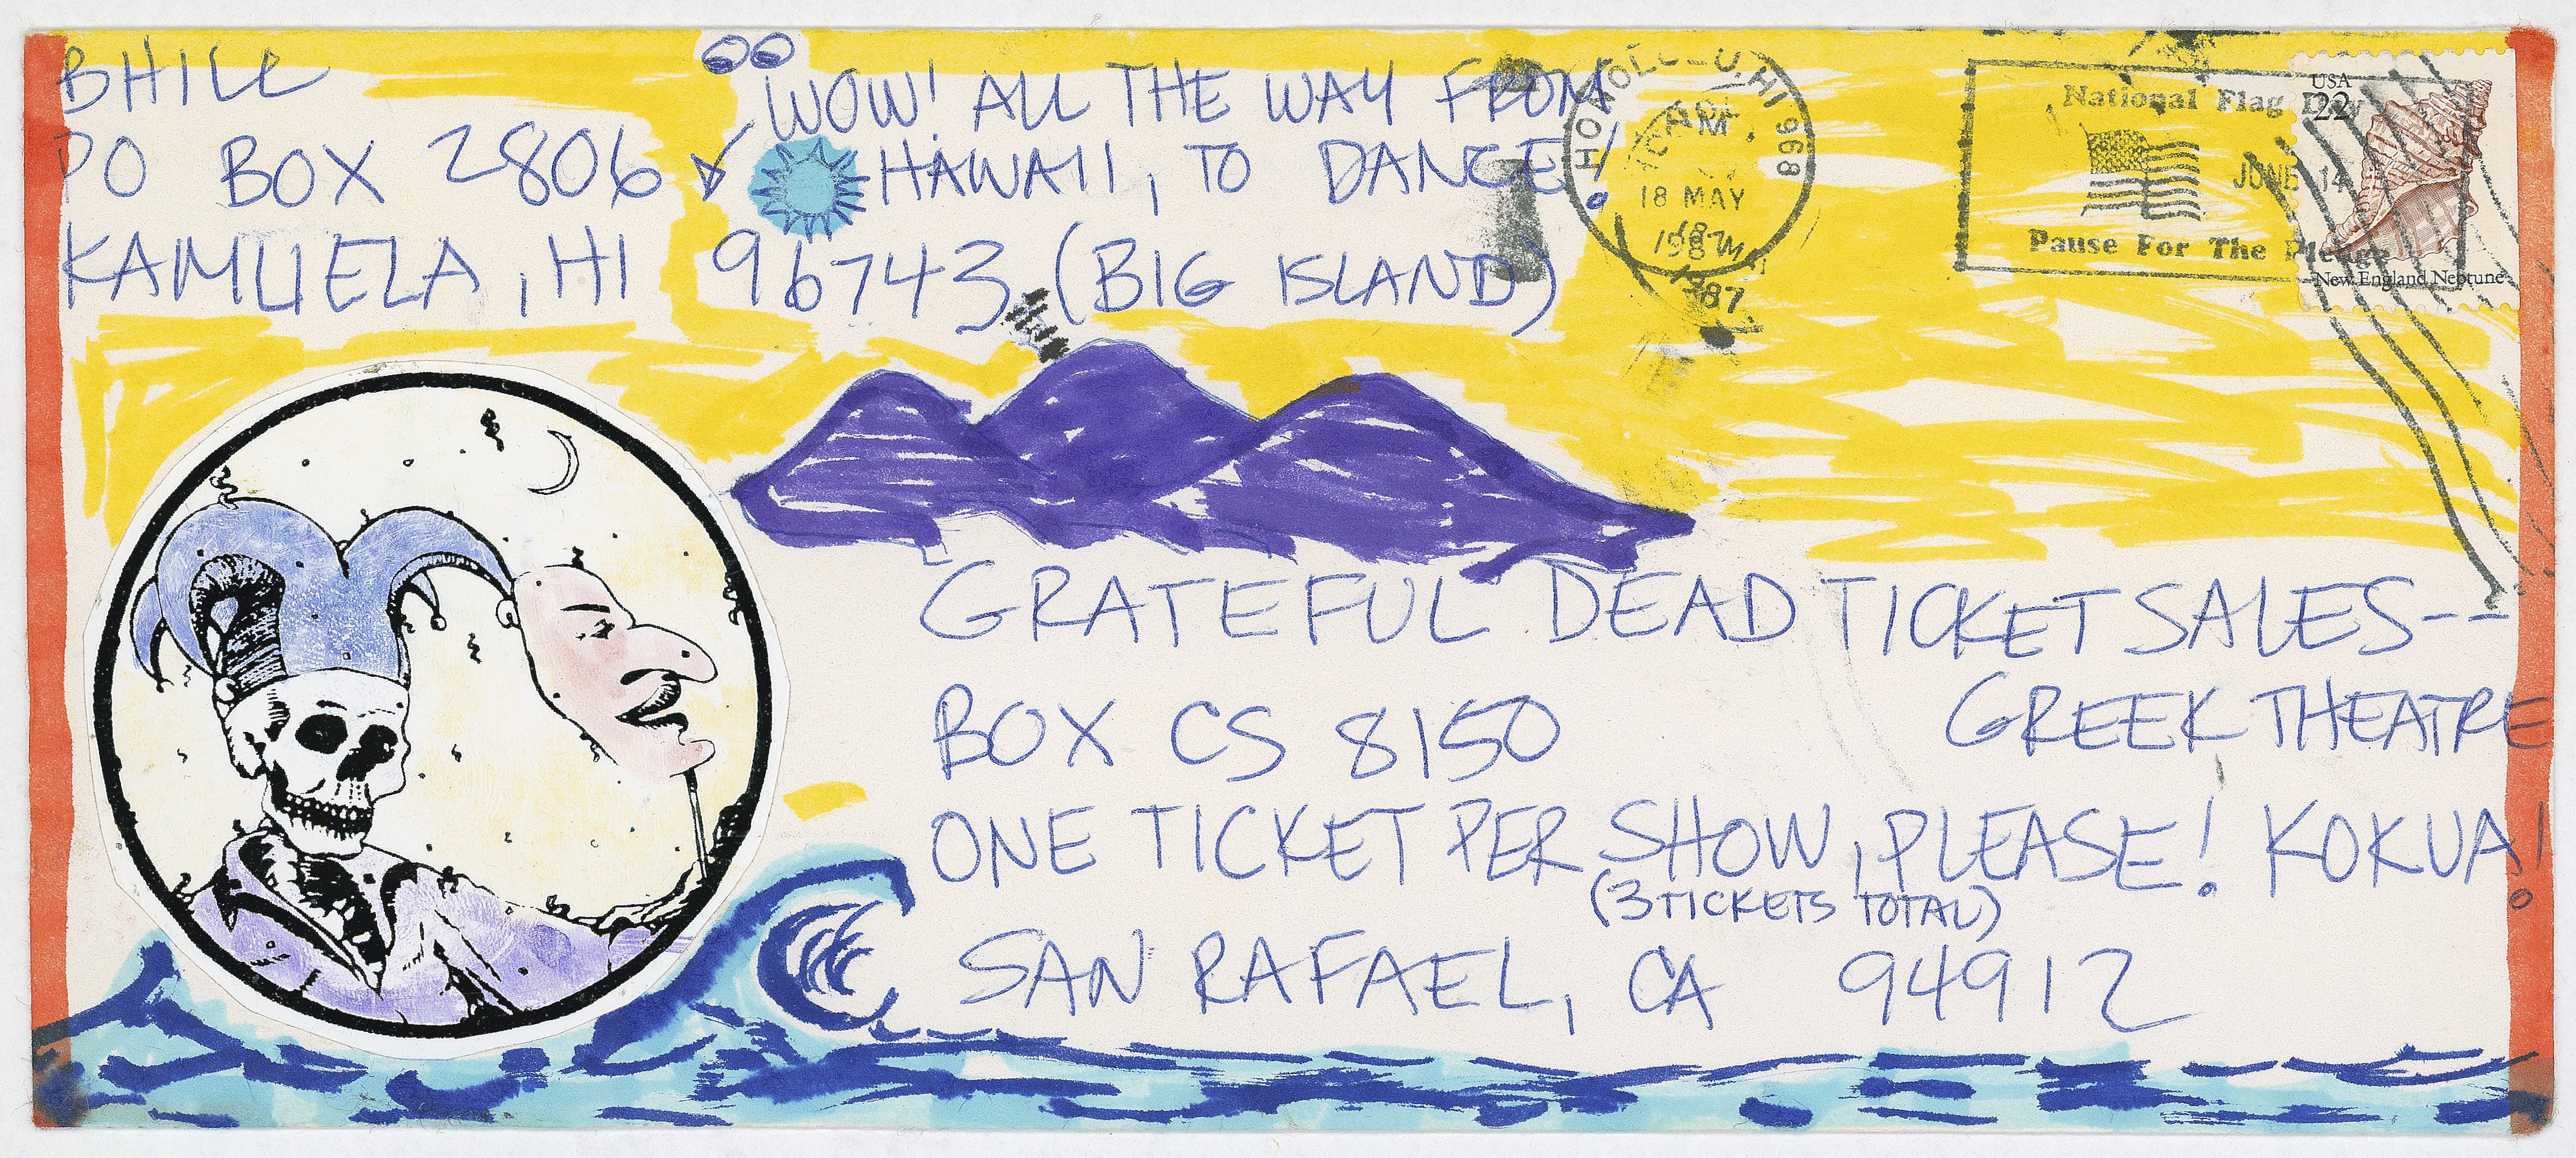 BHILL
PO BOX 2806
KAMUELA, HI 96743 (BIG ISLAND)
WOW! ALL THE WAY FROM
HAWAII, TO DANCE!
HONOLULU, HI 968
PM
18 MAY
1987
1987
National Flag Day
JUNE 14
Pause For The Pledge
USA
22
New England Neptune
GRATEFUL DEAD TICKET SALES--
GREEK THEATRE
BOX CS 8150
ONE TICKET PER SHOW, PLEASE! KOKUA!
(3 TICKETS TOTAL)
SAN RAFAEL, CA 94912